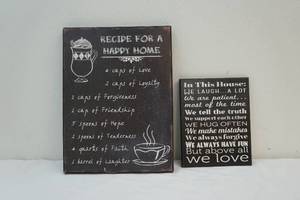 RECIPE FOR A
HAPPY HOME
4 cups of Love
2 cups of Loyalty
3 cups of Forgiveness
1 cup of Friendship
5 spoons of Hope
2 spoons of Tenderness
4 quarts of Faith
1 barrel of Laughter
In This House:
WE LAUGH... A LOT
We are patient...
most of the time
We tell the truth
We support each other
WE HUG OFTEN
We make mistakes
We always forgive
WE ALWAYS HAVE FUN
But above all
we love